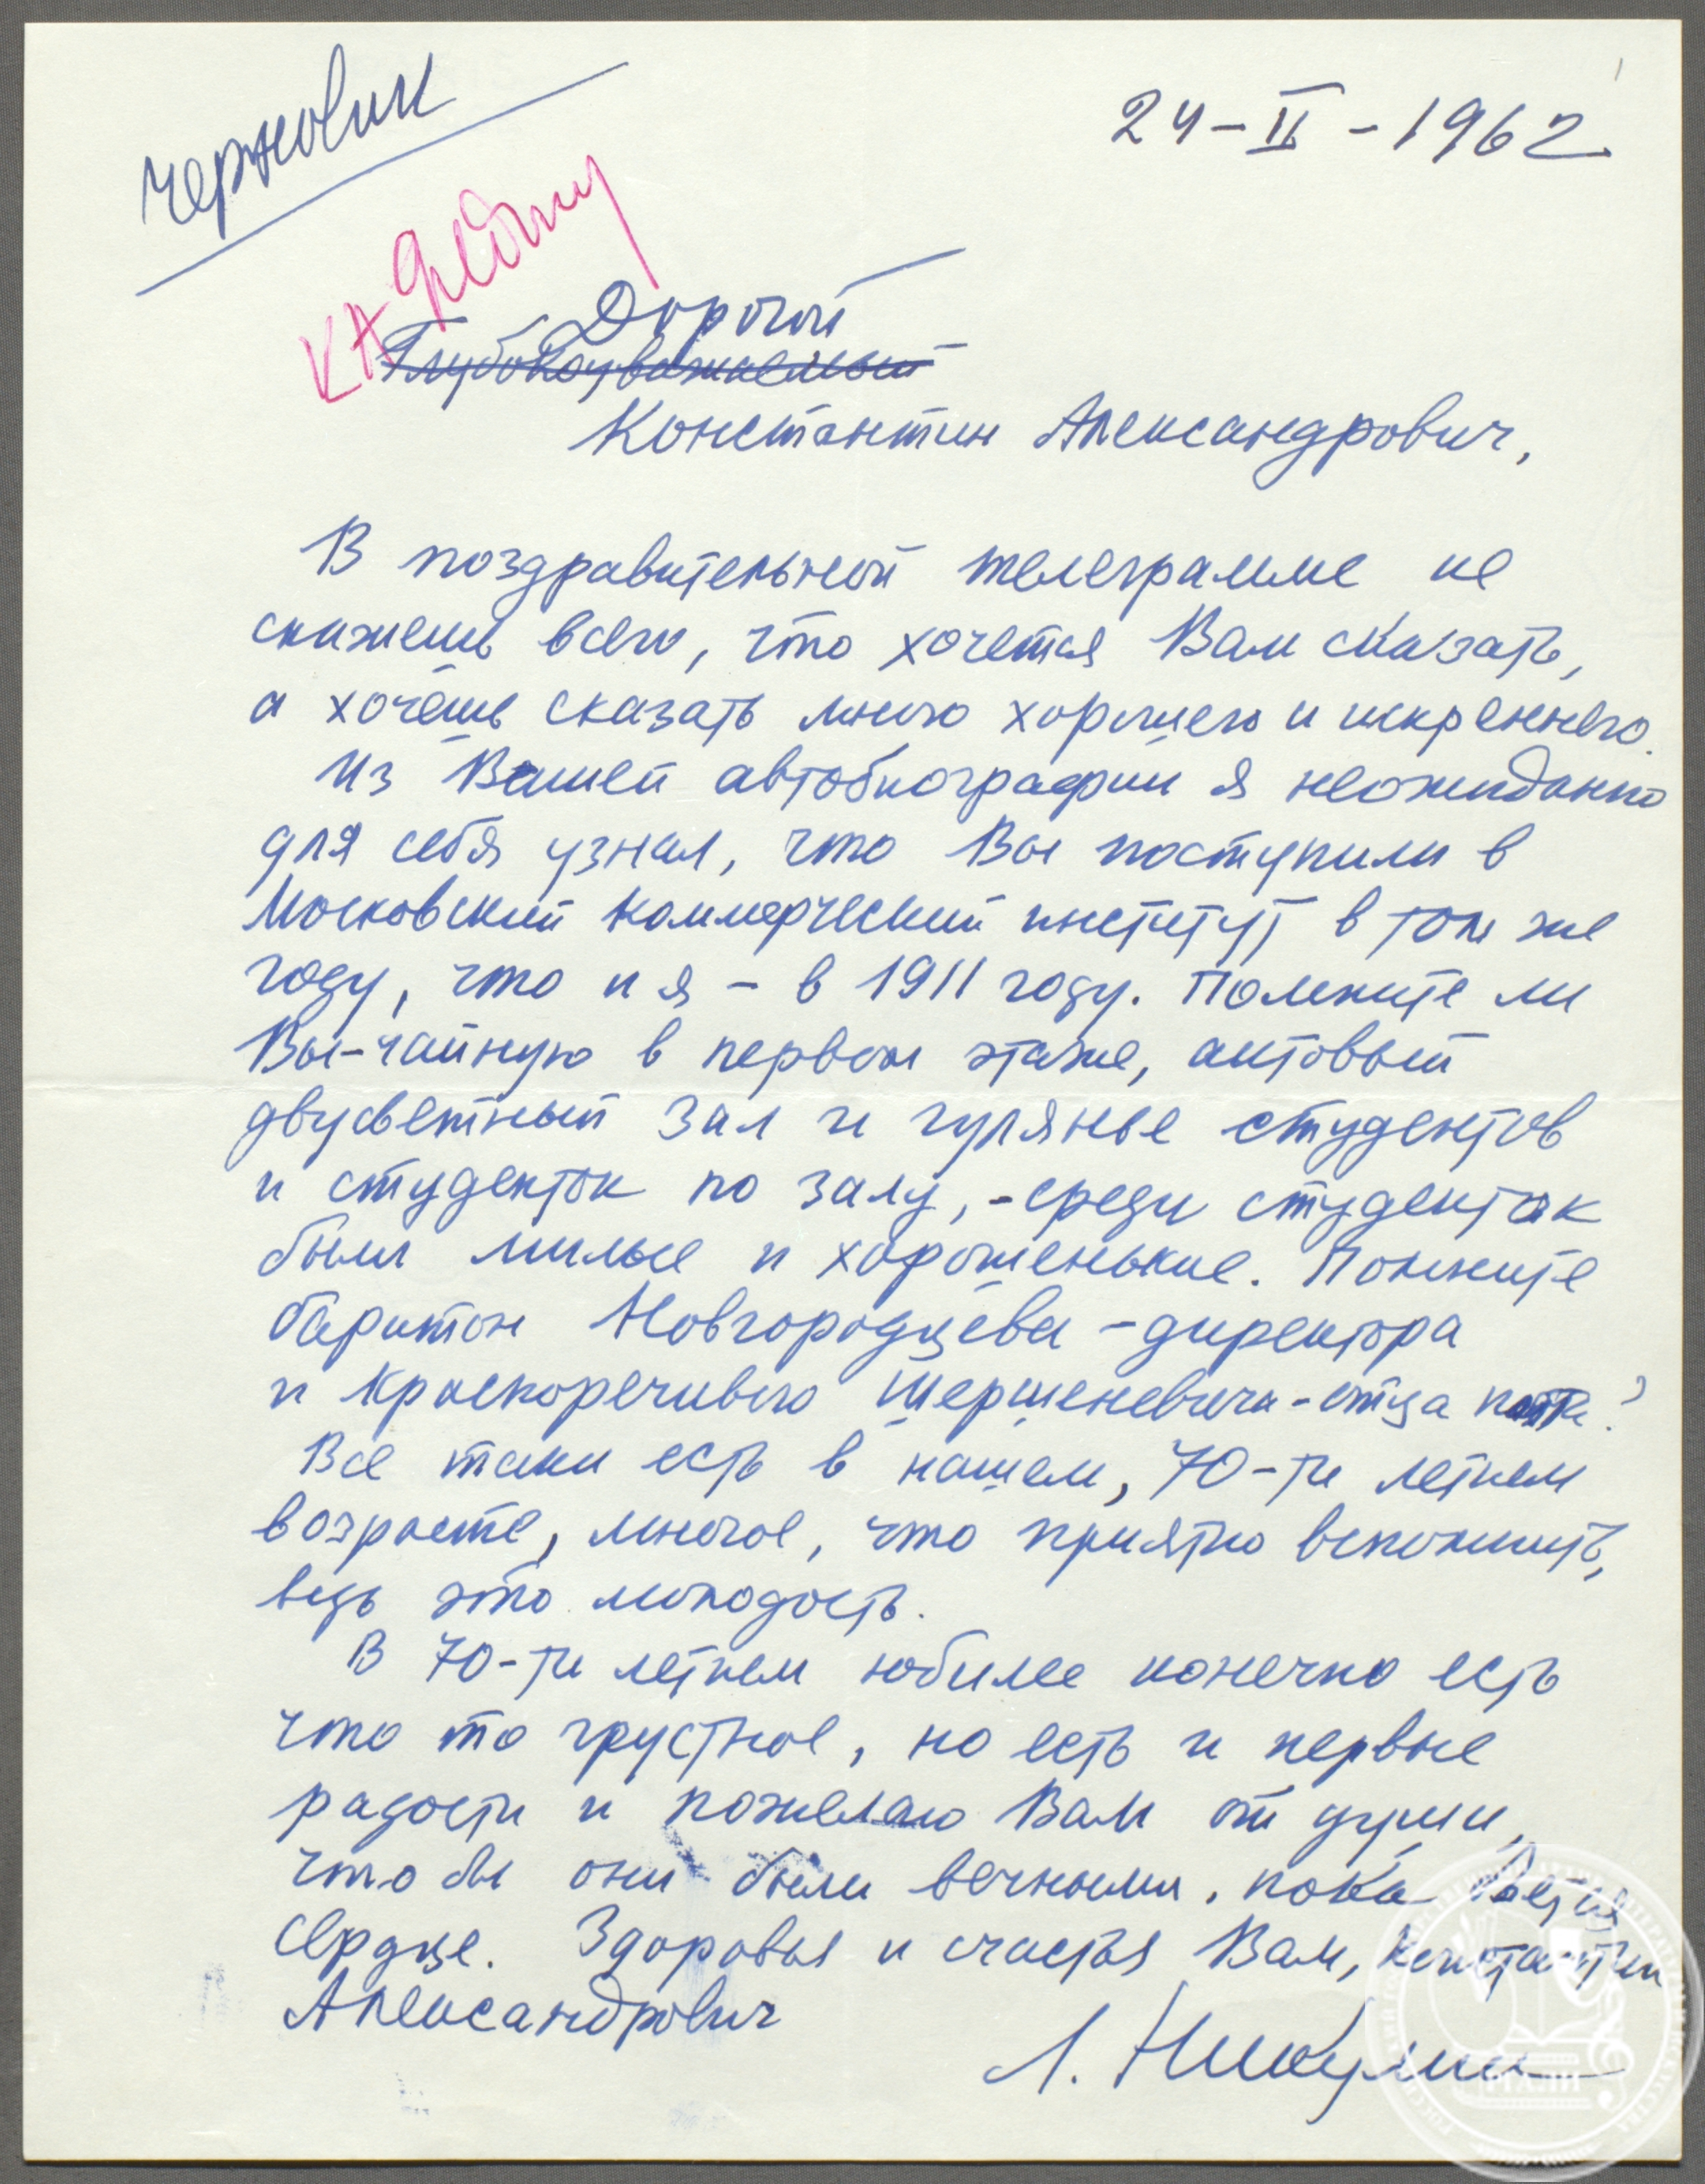 черновик
24-II-1962
КА Федину
Дорогой
Глубокоуважаемый
Константин Александрович,
В поздравительной телеграмме не
скажешь всего, что хочется Вам сказать,
а хочешь сказать много хорошего и искреннего.
Из Вашей автобиографии я неожиданно
для себя узнал, что Вы поступили в
Московский коммерческий институт в том же
году, что и я - в 1911 году. Помните ли
Вы-чайную в первом этаже, актовый
двусветный зал и гулянье студентов
и студенток по залу, -среди студенток
были милые и хорошенькие. Помните
баритон Новгородцева -директора
и красноречивого Шершеневича-отца поэта?
Все таки есть в нашем, 70-ти летнем
возрасте, многое, что приятно вспомнить,
ведь это молодость.
В 70-ти летнем юбилее конечно есть
что то грустное, но есть и
радости и пожелаю Вам от души,
что бы они были вечными, пока бьется
сердце. Здоровья и счастья Вам, Константин
Александрович
Л. Никулин
РГАЛИ